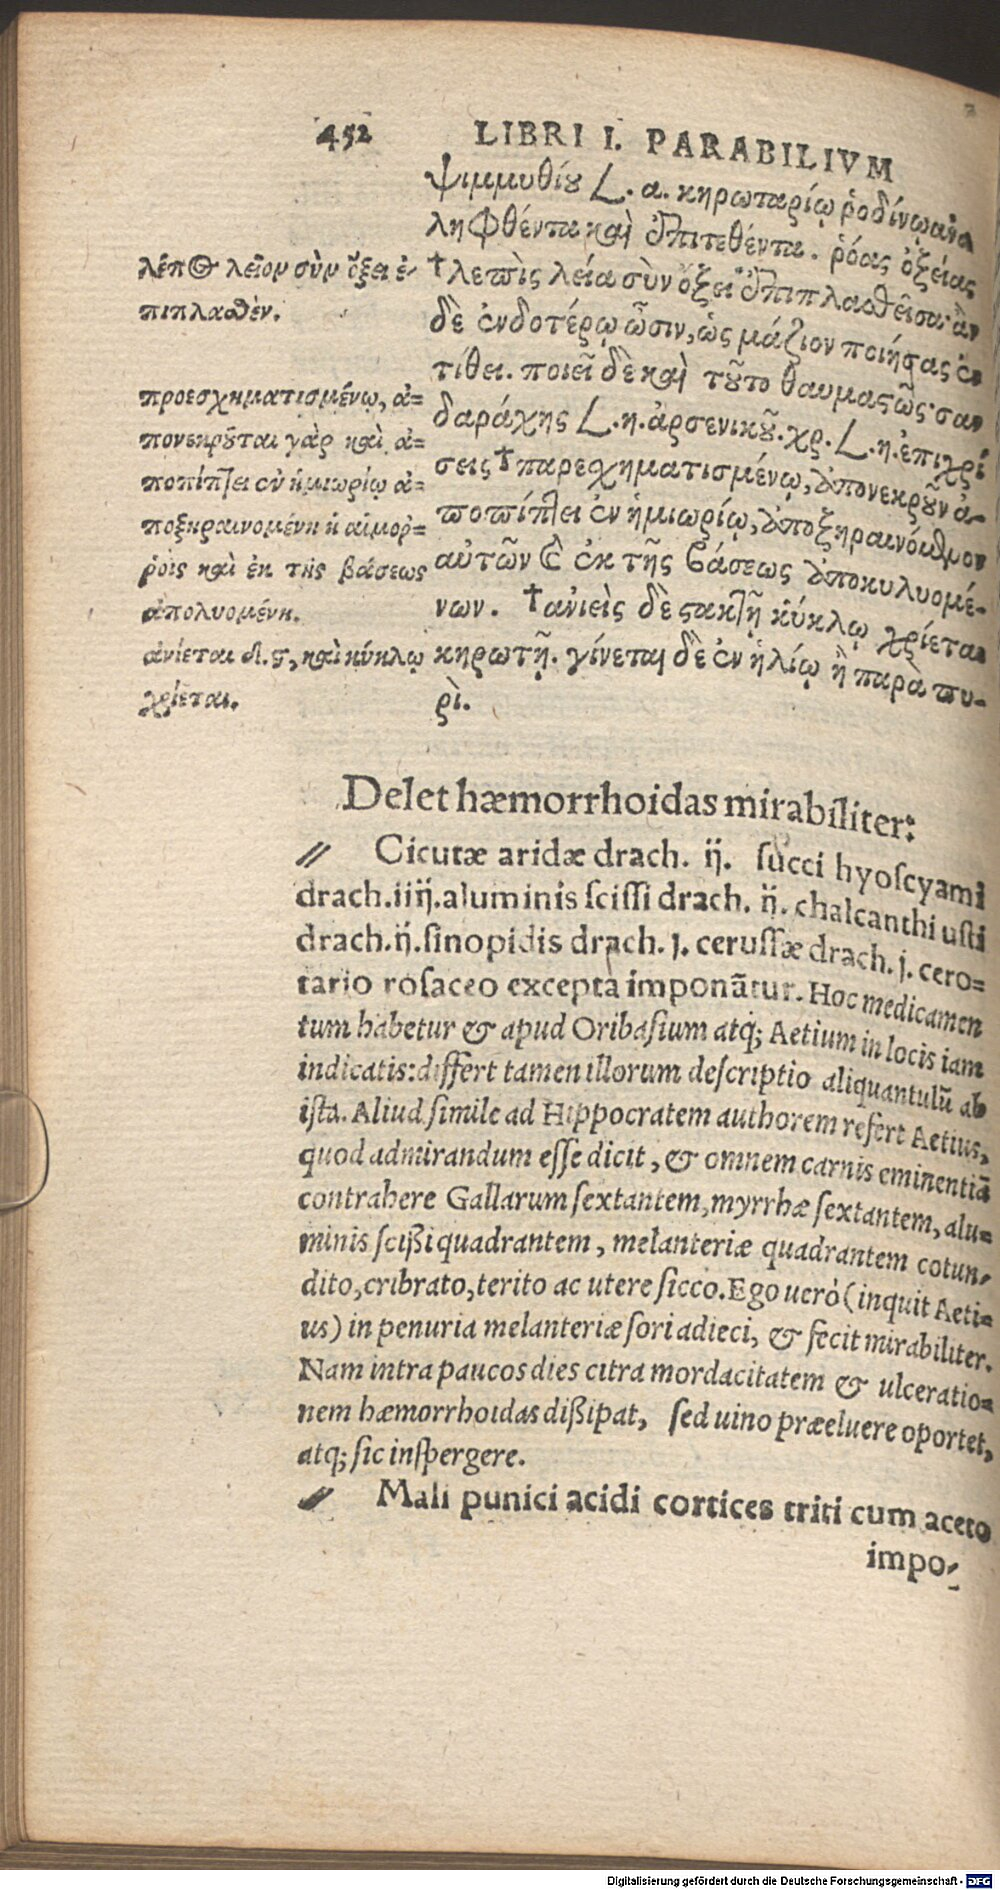 452 LIBRI I. PARABILIVM
ψιμμυθίου L. α. κηρωταρίῳ ῥοδίνῳ ἀνα
ληφθέντα καὶ ἐπιτεθέντα. ῥόας ὀξείας
†λεπὶς λεία σὺν ὄξει ἐπιπλασθεῖσα· ἂν
δὲ ἐνδοτέρῳ ὦσιν, ὡς μάζιον ποιήσας ἐν
τίθει. ποιεῖ δὲ καὶ τοῦτο θαυμαςῶς· σαν
δαράχης L. η. ἀρσενικοῦ. χρ. L. η. ἐπιχρί
σεις †παρεχηματισμένῳ, ἀπονεκροῦν ἀ-
ποπίπτει ἐν ἡμιωρίῳ, ἀποξηραινόμθμον
αὐτῶν ἐ ἐκ τῆς βάσεως ἀποκυλυομέ-
νων. †ἀνιεὶς δὲ τακτῇ κύκλῳ χρίεται
κηρωτῇ. γίνεται δὲ ἐν ἡλίῳ ἢ παρὰ πυ-
ρὶ.
λέπος λεῖον σὺν ὄξει ἐ-
πιπλασθέν.
προεσχηματισμένῳ, ἀ-
πονεκροῦται γὰρ καὶ ἀ=
ποπίπτει ἐν ἡμιωρίῳ ἀ=
ποξηραινομένη ἡ αἱμορ=
ῥοὶς καὶ ἐκ τῆς βάσεως
ἀπολυομένη.
ἀνίεται δ. ς, καὶ κύκλῳ
χρίεται.
Delet hæmorrhoidas mirabiliter:
// Cicutæ aridæ drach. ij. succi hyoscyami
drach. iiij. aluminis scissi drach. ij. chalcanthi usti
drach. ij. sinopidis drach. j. cerussæ drach. j. cero=
tario rosaceo excepta imponãtur. Hoc medicamen
tum habetur & apud Oribasium atq; Aetium in locis iam
indicatis: differt tamen illorum descriptio aliquantulũ ab
ista. Aliud simile ad Hippocratem authorem refert Aetius,
quod admirandum esse dicit, & omnem carnis eminentiã
contrahere Gallarum sextantem, myrrhæ sextantem, alu=
minis scißi quadrantem, melanteriæ quadrantem cotun-
dito, cribrato, terito ac utere sicco. Ego uerò (inquit Aeti=
us) in penuria melanteriæ sori adieci, & fecit mirabiliter.
Nam intra paucos dies citra mordacitatem & ulceratio=
nem hæmorrhoidas dißipat, sed uino præeluere oportet,
atq; sic inspergere.
// Mali punici acidi cortices triti cum aceto
impo-
Digitalisierung gefördert durch die Deutsche Forschungsgemeinschaft - DFG